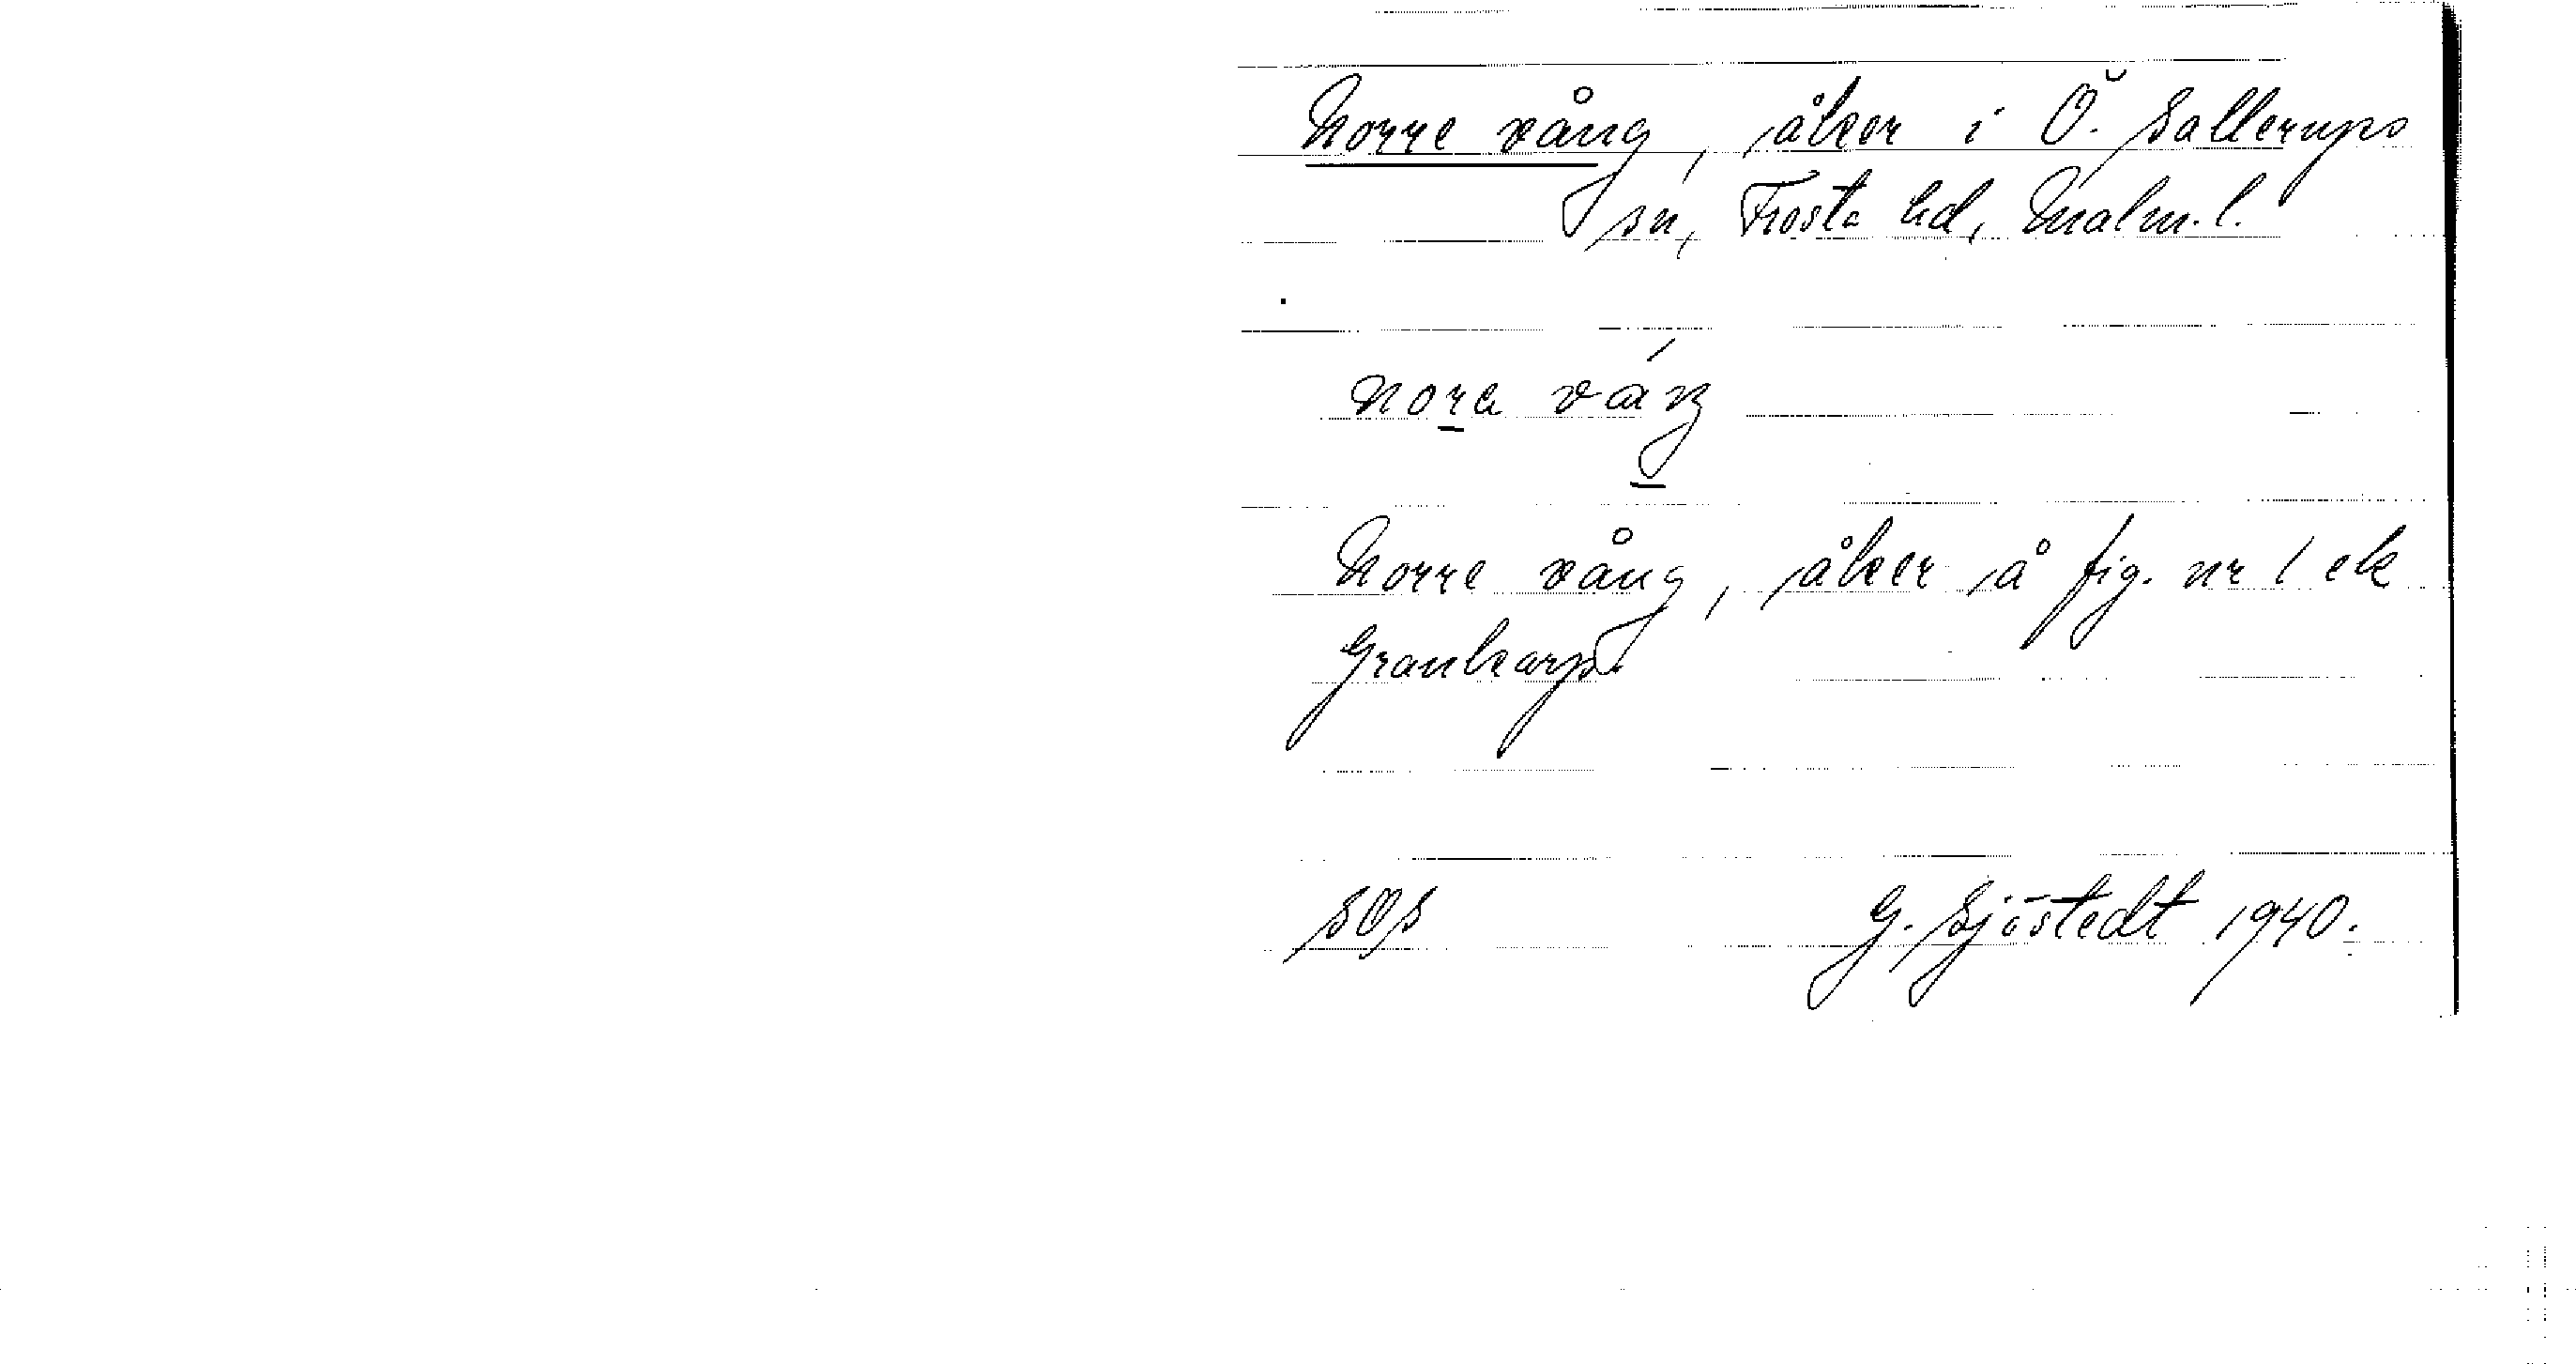 Norre vång, åker i Ö. Sallerups
sn, Frosta hd, Malm. l.
nora váŋ
Norre vång, åker å fig. nr 1 ek
Grankarp
SOS
G. Sjöstedt 1940.